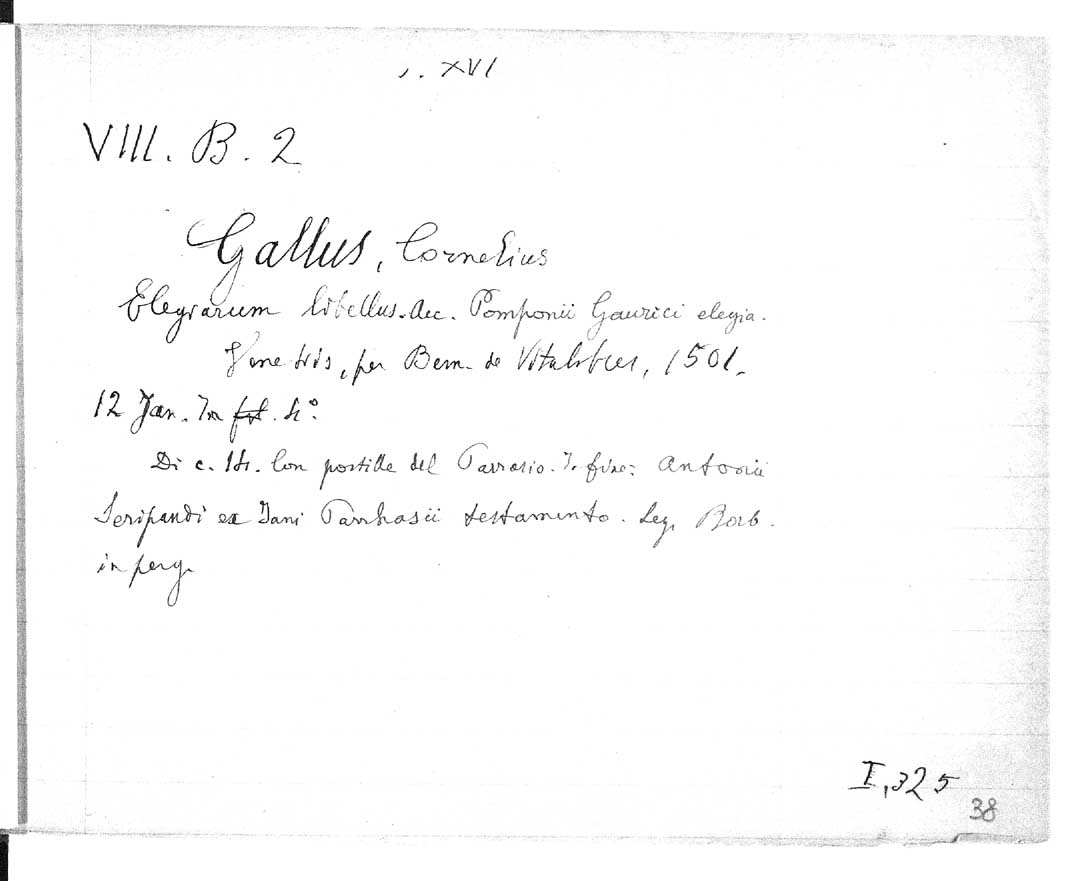 s. XVI
VIII. B. 2
Gallus, Cornelius
Elegiarum libellus. Acc. Pomponii Gaurici elegia.
Venetiis, per Bern. de Vitalibus, 1501.
12 Jan. In 4°.
Di c. 14. Con postille del Parrasio. In fine: Antonii
Seripandi ex Jani Parrhasii testamento. Leg. Borb.
in perg.
I, 325
38